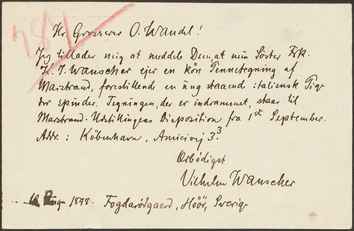 Hr Grosserer O. Wandel!
Jeg tillader mig at meddele Dem, at min Søster Frk.
K. J. Wanscher ejer en kön Pennetegning af
Marstrand, forestillende en ung staaend italiensk Pige
der spinder. Tegningen, der er indrammet, staar til
Marstrand-Udstillingens Disposition fra 1st September.
Adr.: København, Amicisvej 3³
Ærbødigst
Vilhelm Wanscher
Aug 1898. Fogdaröd­gaard, Höör, Sverige